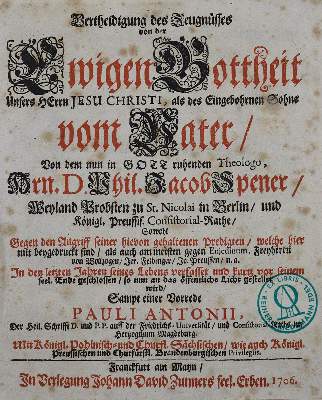 Vertheidigung des Zeugnüsses
von der
Ewigen Gottheit
Unsers HErrn JESU CHRISTI, als des Eingebohrnen Sohns
vom Vater/
Von dem nun in GOTT ruhenden Theologo,
Hrn. D. Phil. Jacob Spener/
Weyland Probsten zu St. Nicolai in Berlin/ und
Königl. Preussis. Consistorial-Rathe/
Sowohl
Gegen den Angriff seiner hievon gehaltenen Predigten/ welche hier
mit beygedruckt sind/ als auch am meisten gegen Freyherrn
von Wolzogen/ Jer. Felbinger/ Jo. Preussen/ u. a.
In den letzten Jahren seines Lebens verfasset und kurtz vor seinem
seel. Ende geschlossen/ so nun an das öffentliche Licht gestellet
wird/
Sampt einer Vorrede
PAULI ANTONII,
Der Heil. Schrifft D. und P.P. auff der Friedrichs-Universität/ und
Hertzogthum Magdeburg.
Mit Königl. Pohlnisch-und Churfl. Sächsischen/ wie auch Königl.
Preussischen und Churfürstl. Brandenburgischen Privilegiis.
Franckfurt am Mayn/
In Verlegung Johann David Zunners seel. Erben. 1706.